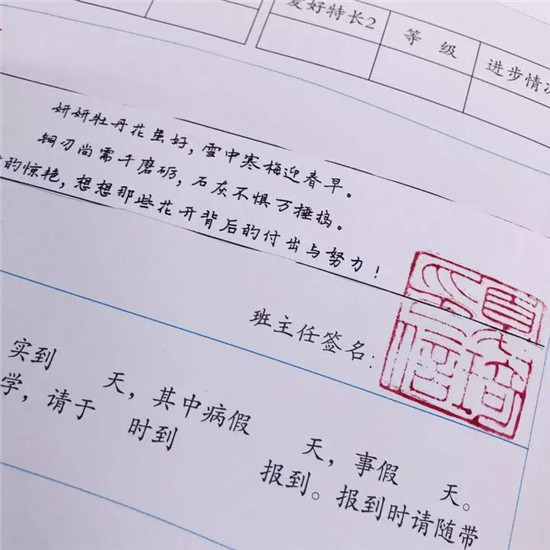 爱好特长2 等 级 进步情况
妍妍牡丹花虽好，雪中寒梅迎春早。
钢刃尚需千磨砺，石灰不惧万捶捣。
的惊艳，想想那些花开背后的付出与努力！
班主任签名：
实到 天，其中病假 天，事假 天。
学，请于 时到 报到。报到时请随带